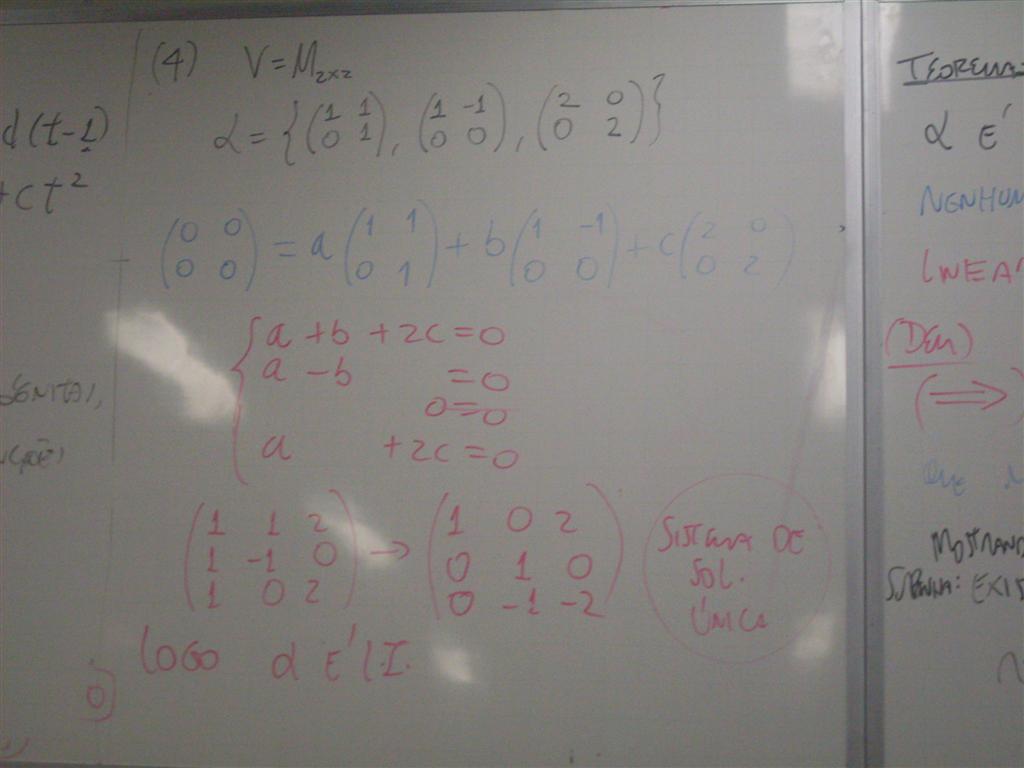 d(t-1)
+ct²
(4) V = M₂ₓ₂
α = {(1 1; 0 1), (1 -1; 0 0), (2 0; 0 2)}
(0 0; 0 0) = a(1 1; 0 1) + b(1 -1; 0 0) + c(2 0; 0 2)
{a + b + 2c = 0
a - b = 0
0 = 0
a + 2c = 0
(1 1 2; 1 -1 0; 1 0 2) → (1 0 2; 0 1 0; 0 -1 -2)
SISTEMA DE
SOL.
ÚNICA
LOGO α E' L.I.
TEOREMA
α E'
NENHUM
LINEA
(DEM)
(⟹)
QUE
MOSTRAND